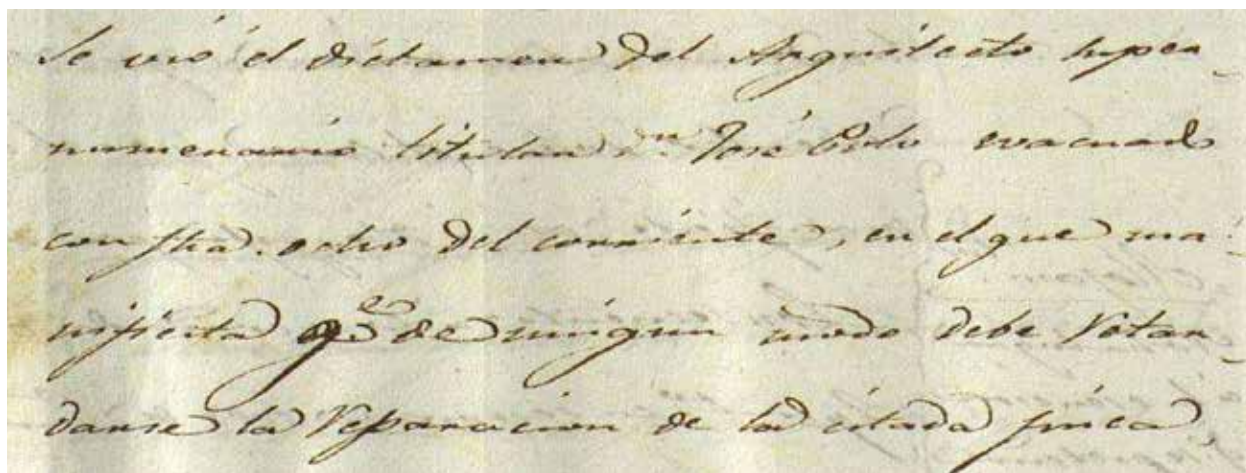 Se vió el dictamen del Arquitecto super
numerario titular dn. José Polo evacuado
con fha. ocho del corriente, en el que ma
nifiesta qe. de ningun modo debe retar
darse la reparacion de la citada finca,